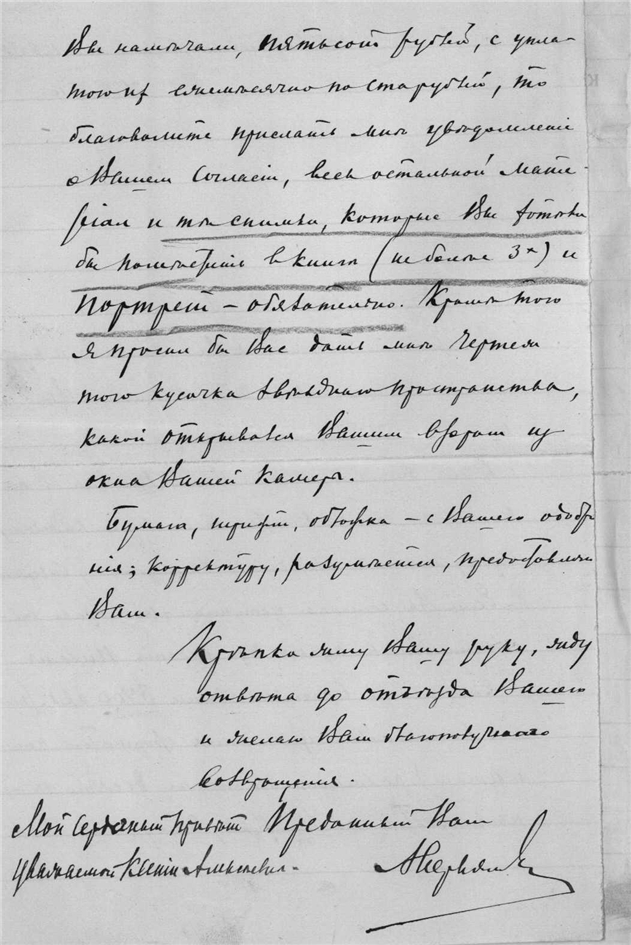 Вы намѣчали, пятьсотъ рублей, с упла-
тою их ежемѣсячно по сто рублей, то
благоволите прислать мнѣ увѣдомленіе
о Вашемъ согласіи, весь остальной мате-
ріал и тѣ снимки, которые Вы хотѣли
бы помѣстить в книгѣ (не болѣе 3х) и
портрет – обязательно. Кромѣ того
я просил бы Вас дать мнѣ чертеж
того кусочка звѣзднаго пространства,
какой открывался Вашим взорам из
окна Вашей камеры.
Бумага, шрифт, обложка – с Вашего одобре-
нія; корректуру, разумѣется, предоставляю
Вам.
Крѣпко жму Вашу руку, жду
отвѣта до отъѣзда Вашего
и желаю Вам благополучнаго
возвращенія.
Мой сердечный привѣт Преданный Вам
уважаемой Ксеніи Алексѣевнѣ.